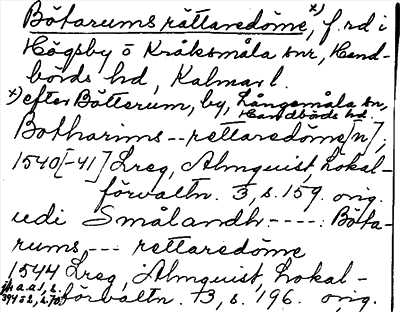 Bötarums rättaredöme, x) f. rd i
Högsby o Kråksmåla snr, Hand-
börds hd, Kalmar l.
x) efter Bötterum, by, Långemåla sn,
Handbörds hd.
Botharims -- rettaredöme[n],
1540[-41] Lreg, Almquist, Lokal-
förvaltn. 3, s. 159. orig.
udi Smålandh ---- Böta-
rums, --- rettaredöme
1544 Lreg, Almquist, Lokal-
förvaltn. 3, s. 196. orig.